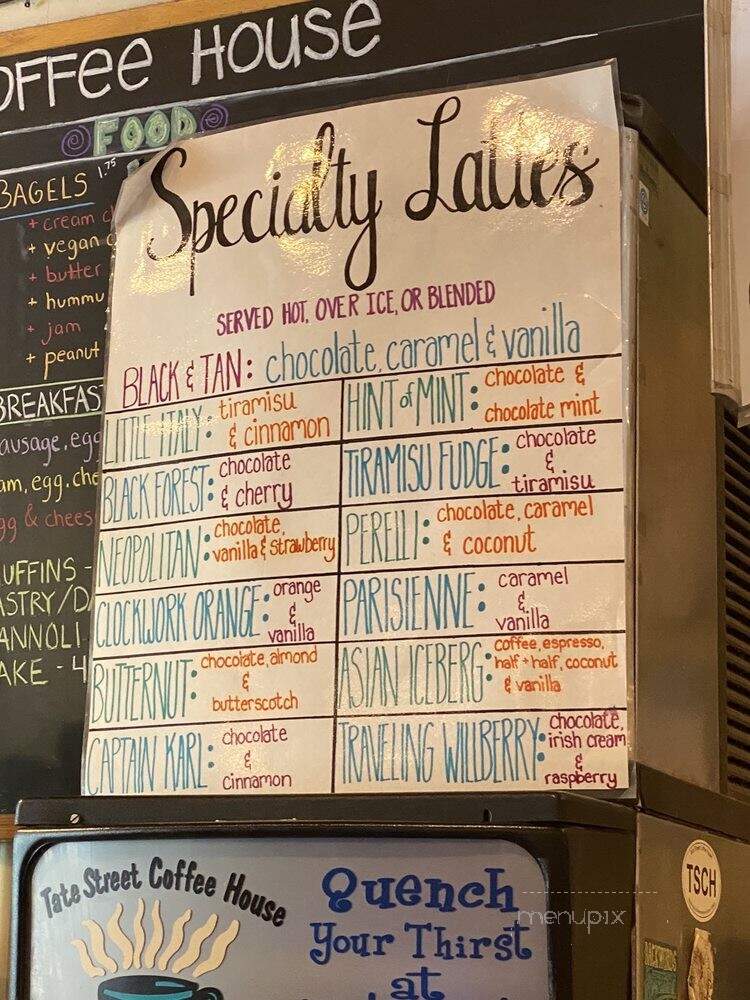 OFFEE HOUSE
FOOD
BAGELS 1.75
+ cream
+ vegan
+ butter
+ hummu
+ jam
+ peanut
BREAKFAS
ausage, egg
am, egg, che
gg & chees
UFFINS -
ASTRY/D
ANNOLI
AKE - 4
Specialty Lattes
SERVED HOT, OVER ICE, OR BLENDED
BLACK & TAN: chocolate, caramel & vanilla
LITTLE ITALY: tiramisu
& cinnamon
HINT of MINT: chocolate &
chocolate mint
BLACK FOREST: chocolate
& cherry
TIRAMISU FUDGE: chocolate
&
tiramisu
NEOPOLITAN: chocolate,
vanilla & strawberry
PERELLI: chocolate, caramel
& coconut
CLOCKWORK ORANGE: orange
&
vanilla
PARISIENNE: caramel
&
vanilla
BUTTERNUT: chocolate, almond
&
butterscotch
ASIAN ICEBERG: coffee, espresso,
half + half, coconut
& vanilla
CAPTAIN KARL: chocolate
&
cinnamon
TRAVELING WILLBERRY: chocolate,
irish cream
&
raspberry
Tate Street Coffee House
Quench
Your Thirst
at
TSCH
menupix